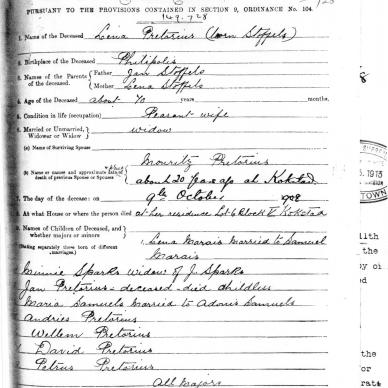 PURSUANT TO THE PROVISIONS CONTAINED IN SECTION 9, ORDINANCE No. 104.
149.728
1. Name of the Deceased Lena Pretorius (born Stoffels)
2. Birthplace of the Deceased Philipolis
3. Names of the Parents of the deceased. Father Jan Stoffels
Mother Lena Stoffels
4. Age of the Deceased about 70 years months.
5. Condition in life (occupation) Peasant wife
6. Married or Unmarried, Widower or Widow widow
(a) Name of Surviving Spouse
(b) Name and approximate date of death of previous Spouse or Spouses Mouritz Pretorius
about 20 years ago at Kokstad
7. The day of the decease: on 9th October 1908
8. At what House or where the Person died at her residence Lot 6 Block V Kokstad
9. Names of Children of Deceased, and whether majors or minors
(Stating separately those born of different marriages.)
Lena Marais Married to Samuel
Marais
Minnie Sparks widow of J. Sparks
Jan Pretorius - deceased - died childless
Maria Samuels Married to Adonis Samuels
Andries Pretorius
Wellem Pretorius
David Pretorius
Petrus Pretorius
All Majors
1913
TOWN
the
by of